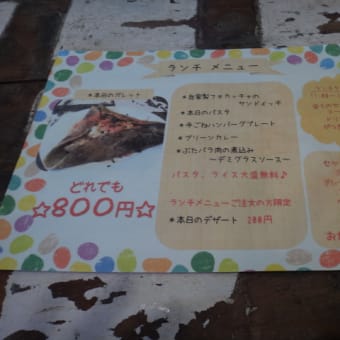 ランチ メニュー
*本日のガレット
どれでも
☆800円☆
*自家製フォカッチャの
サンドイッチ
*本日のパスタ
*牛ごねハンバーグプレート
*グリーンカレー
*ぶたバラ肉の煮込み
〜デミグラスソース〜
パスタ、ライス大盛無料♪
ランチメニューご注文の方限定
*本日のデザート 200円